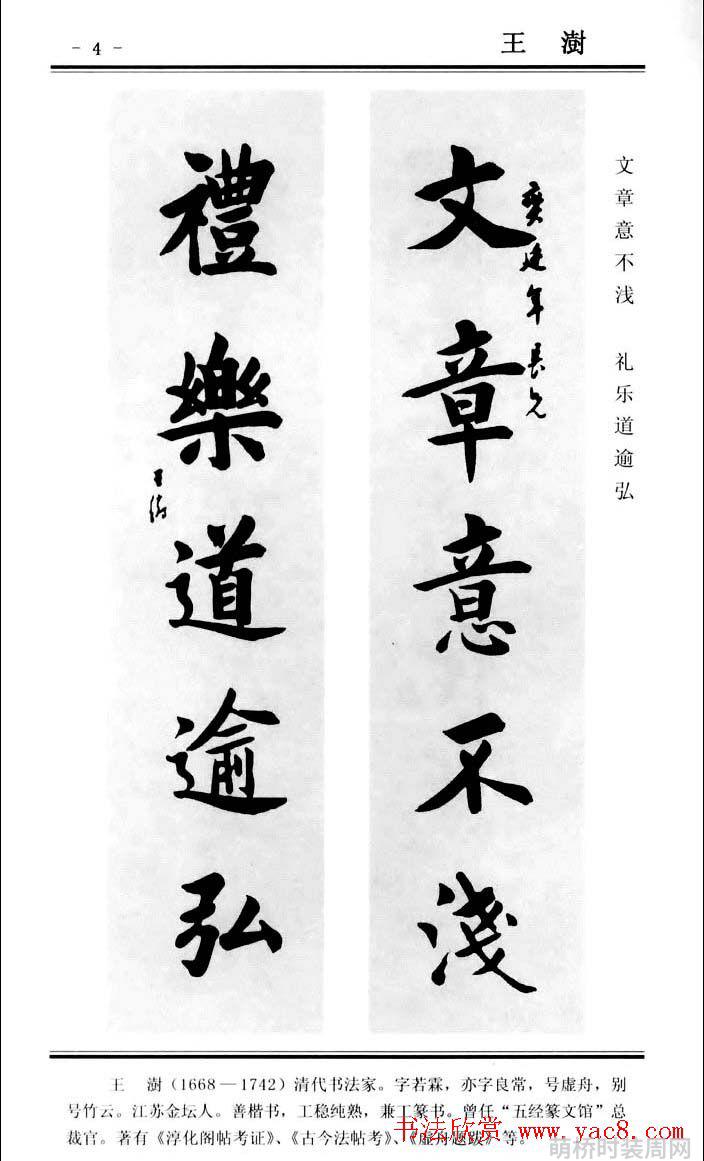 - 4 -
王 澍
文章意不浅 礼乐道逾弘
文章意不淺
年長兄
禮樂道逾弘
王澍
王 澍(1668—1742)清代书法家。字若霖,亦字良常,号虚舟,别
号竹云。江苏金坛人。善楷书,工稳纯熟,兼工篆书。曾任“五经篆文馆”总
裁官。著有《淳化阁帖考证》、《古今法帖考》、《虚舟题跋》等。
书法欣赏 www.yac8.com
萌桥时装周网